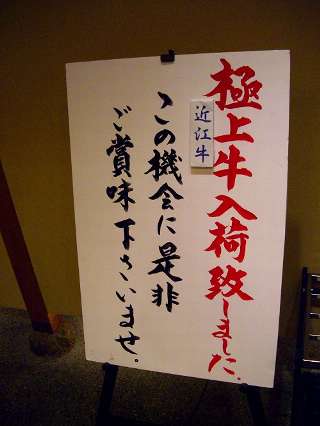 極上牛入荷致しました。
近江牛
この機会に是非
ご賞味下さいませ。